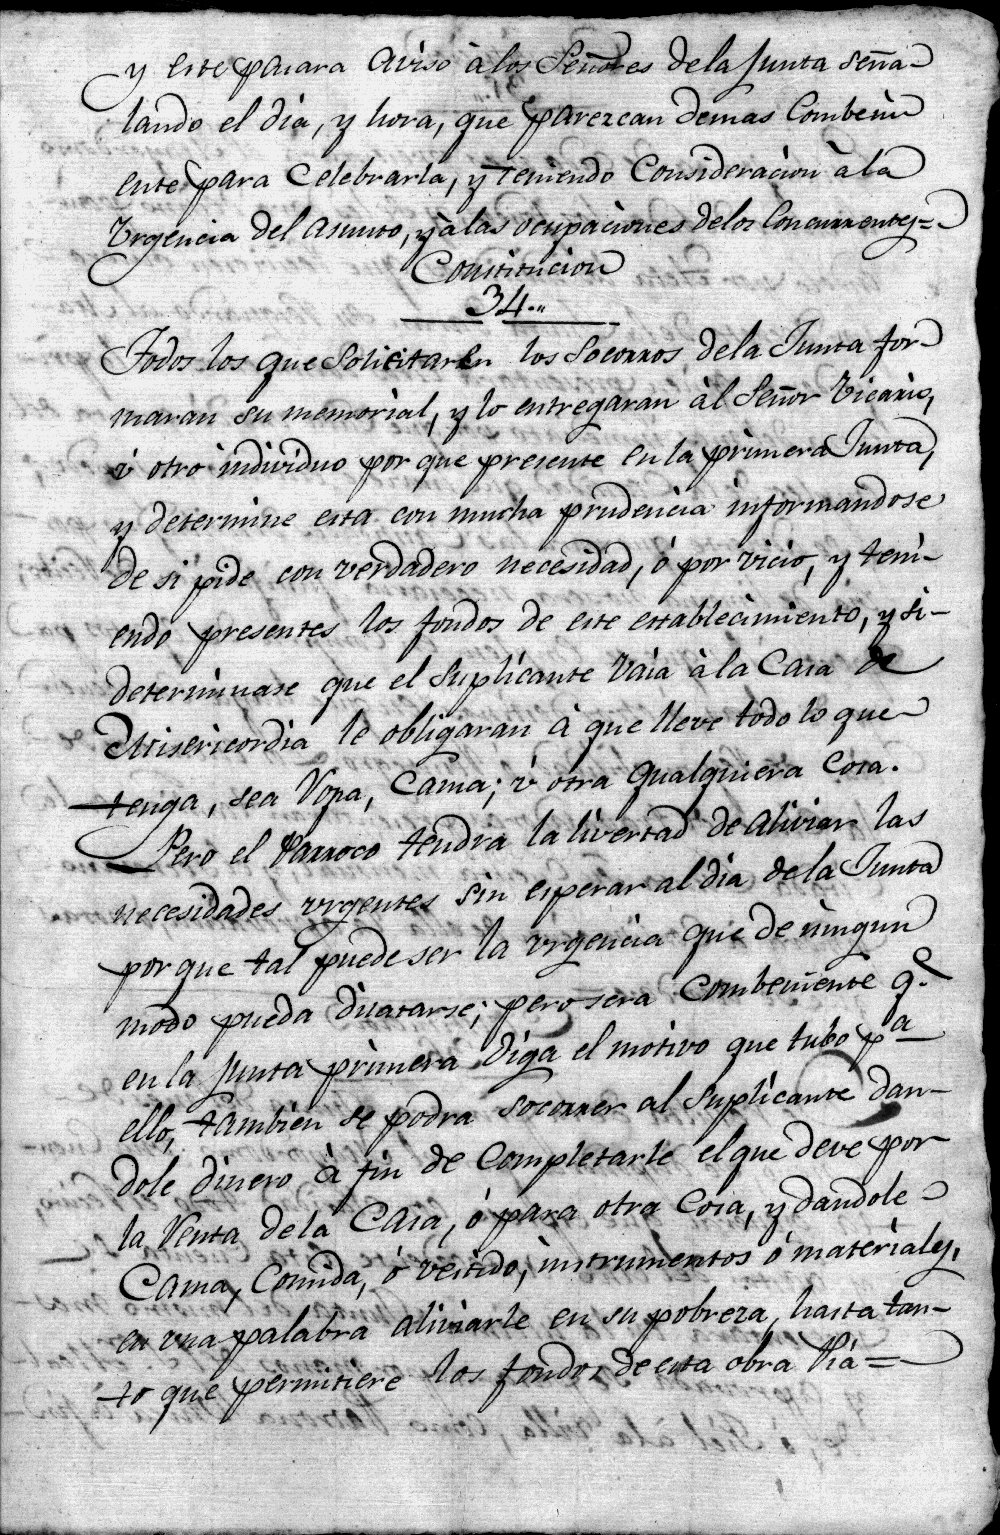 y este pasara aviso à los Señores dela Junta seña-
lando el dia, y hora, que parezcan demas Combeni
ente para Celebrarla, y Teniendo Consideracion à la
Vrgencia del Asunto, y à las ocupaciones delos Concurrentes=
Constitucion
34..
Todos los que Solicitaren los Socorros dela Junta for-
maran su memorial, y lo entregaran àl Señor Vicario,
ù otro individuo por que presente en la primera Junta,
y determine esta con mucha prudencia informandose
de si pide con verdadero necesidad, ó por vicio, y teni-
endo presentes los fondos de este establecimiento, y si-
determinase que el Suplicante Vaia à la Casa de
Misericordia le obligaran à que lleve todo lo que
tenga, sea Ropa, Cama; ù otra qualquiera Cosa.
Pero el Parroco tendra la livertad de aliviar las
necesidades vrgentes sin esperar al dia de la Junta
por que tal puede ser la vrgencia que de ningun
modo pueda dilatarse; pero sera Combeniente q.e
en la Junta primera diga el motivo que tubo pa
ello, tambien se podra socorrer al Suplicante dan-
dole dinero à fin de Completarle el que deve por
la Venta de la Casa, ó para otra Cosa, y dandole
Cama, Comida, ó vestido, instrumentos ó materiales,
en vna palabra aliviarle en su pobreza, hasta tan-
to que permitiere los fondos de esta obra Pia=